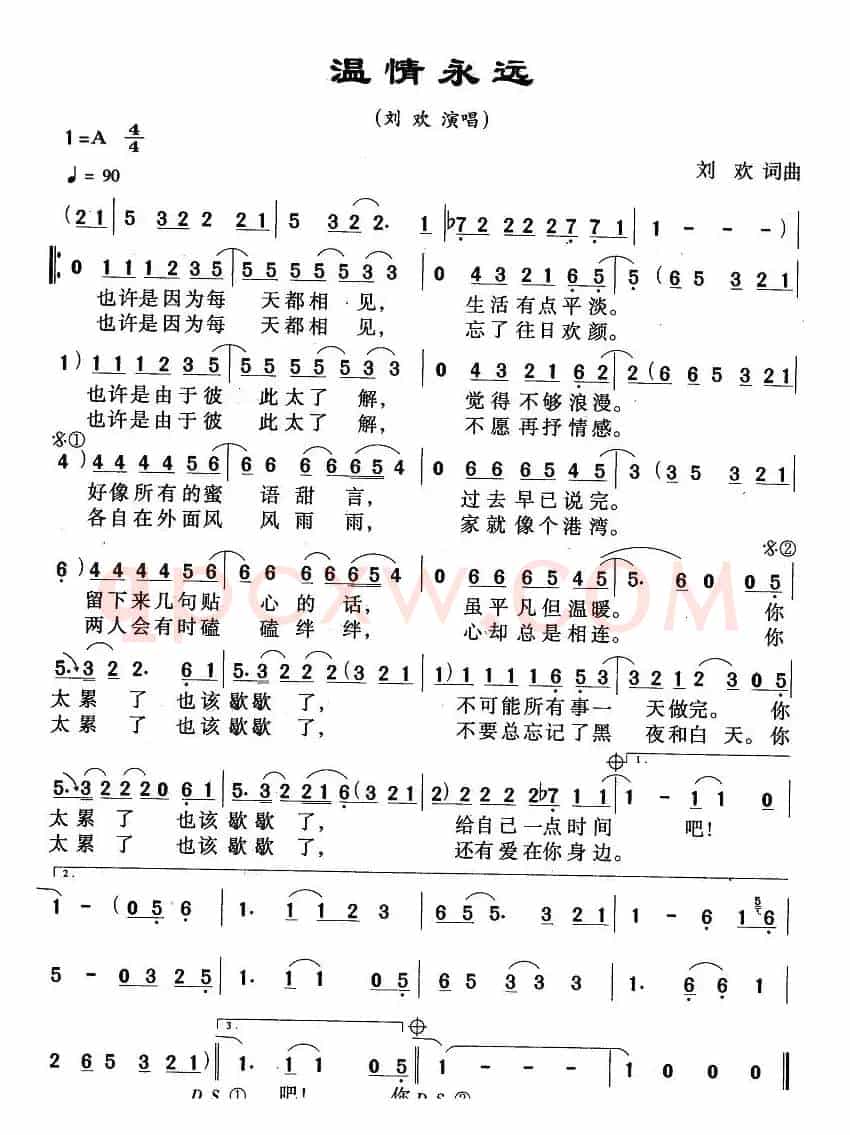 温情永远
(刘 欢 演唱)
1=A 4/4
♩= 90
刘 欢 词曲
(2 1 | 5 3 2 2 2 1 | 5 3 2 2· 1 | ♭7 2 2 2 2 7 7 1 | 1 - - - )
0 1 1 1 2 3 5 | 5 5 5 5 5 3 3 | 0 4 3 2 1 6 5 | 5 (6 5 3 2 1
也许是因为每 天都相 见, 生活有点平淡。
也许是因为每 天都相 见, 忘了往日欢颜。
1) 1 1 1 2 3 5 | 5 5 5 5 5 3 3 | 0 4 3 2 1 6 2 | 2 (6 6 5 3 2 1
也许是由于彼 此太了 解, 觉得不够浪漫。
也许是由于彼 此太了 解, 不愿再抒情感。
𝄋①
4) 4 4 4 4 5 6 | 6 6 6 6 6 5 4 | 0 6 6 6 5 4 5 | 5 (3 5 3 2 1
好像所有的蜜 语甜言, 过去早已说完。
各自在外面风 风雨雨, 家就像个港湾。
𝄋②
6) 4 4 4 4 5 6 | 6 6 6 6 6 5 4 | 0 6 6 6 5 4 5 | 5· 6 0 0 5
留下来几句贴 心的话, 虽平凡但温暖。 你
两人会有时磕 磕绊绊, 心却总是相连。 你
5·3 2 2· 6 1 | 5·3 2 2 2 (3 2 1 | 1) 1 1 1 1 6 5 3 | 3 2 1 2 3 0 5
太累 了 也该歇歇了, 不可能所有事一 天做完。 你
太累 了 也该歇歇了, 不要总忘记了黑 夜和白 天。你
5·3 2 2 2 0 6 1 | 5·3 2 2 2 1 6 (3 2 1 | 2) 2 2 2 2 ♭7 1 1 | 1 - 1 1 0
1.
太累 了 也该歇歇了, 给自己一点时间 吧!
太累 了 也该歇歇了, 还有爱在你身边。
2.
1 - (0 5 6 | 1· 1 1 2 3 | 6 5 5· 3 2 1 | 1 - 6 1 6
5 - 0 3 2 5 | 1· 1 1 0 5 | 6 5 3 3 3 | 1· 6 6 1
3.
2 6 5 3 2 1) | 1· 1 1 0 5 | 1 - - - | 1 0 0 0
D.S.① 吧! 你 D.S.②
qpcxw.COM